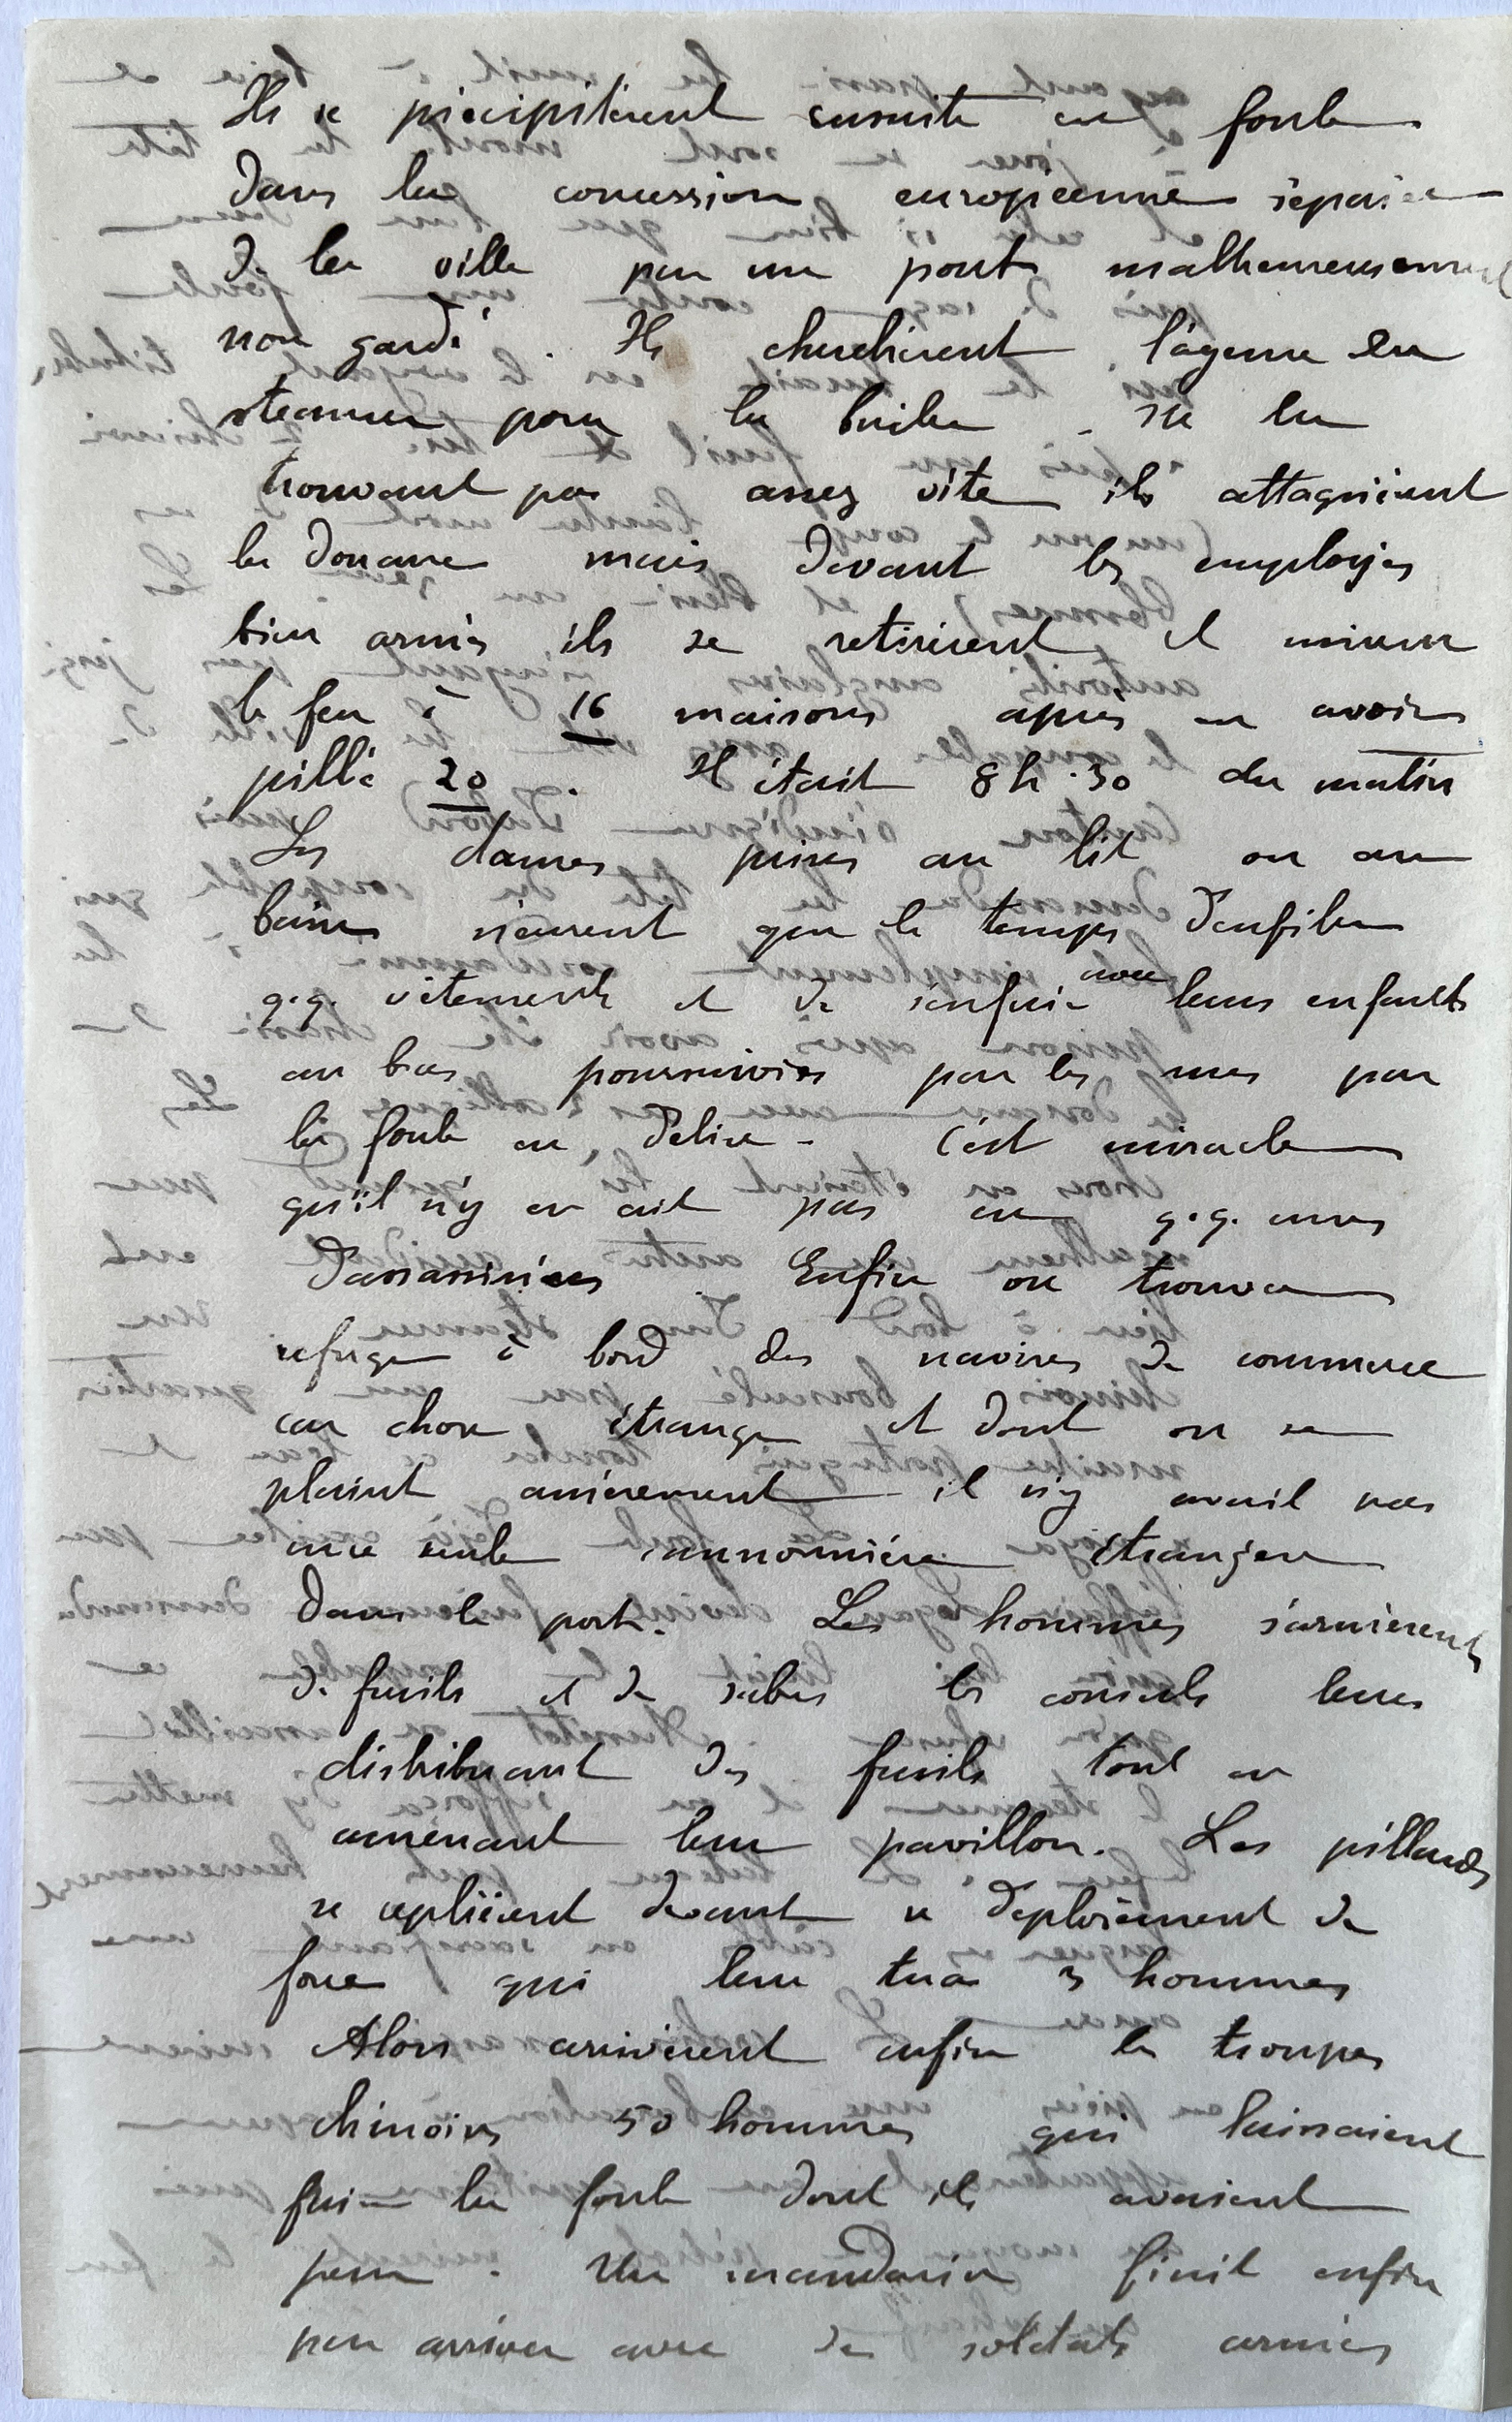 Ils se précipitèrent ensuite en foule
dans la concession européenne séparée
de la ville par un pont malheureusement
non gardé. Ils cherchèrent l'agence du
steamer pour la bruler. ne la
trouvant pas assez vite ils attaquèrent
la douane mais devant les employés
bien armés ils se retirèrent et mirent
le feu à 16 maisons après en avoir
pillé 20. Il était 8h.30 du matin
Les dames prises au lit ou au
bain n'eurent que le temps d'enfiler
q.q. vêtements et de s'enfuir avec leurs enfants
au bras poursuivies par les rues par
la foule en délire - C'est miracle
qu'il n'y en ait pas eu q.q. unes
d'assassinées. Enfin on trouva
refuge à bord des navires de commerce
car chose étrange et dont on se
plaint amèrement il n'y avait pas
une seule cannonière étrangère
dans le port. Les hommes s'armèrent
de fusils et de sabres les consuls leur
distribuant des fusils tout en
amenant leur pavillon. Les pillards
se replièrent devant ce déploiement de
force qui leur tua 3 hommes
Alors arrivèrent enfin les troupes
chinoises 50 hommes qui laissaient
fuir la foule dont ils avaient
peur. Un mandarin finit enfin
par arriver avec des soldats armés